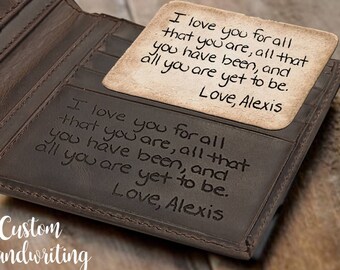 I love you for all
that you are, all that
you have been, and
all you are yet to be.
Love, Alexis
I love you for all
that you are, all that
you have been, and
all you are yet to be.
Love, Alexis
Custom
andwriting